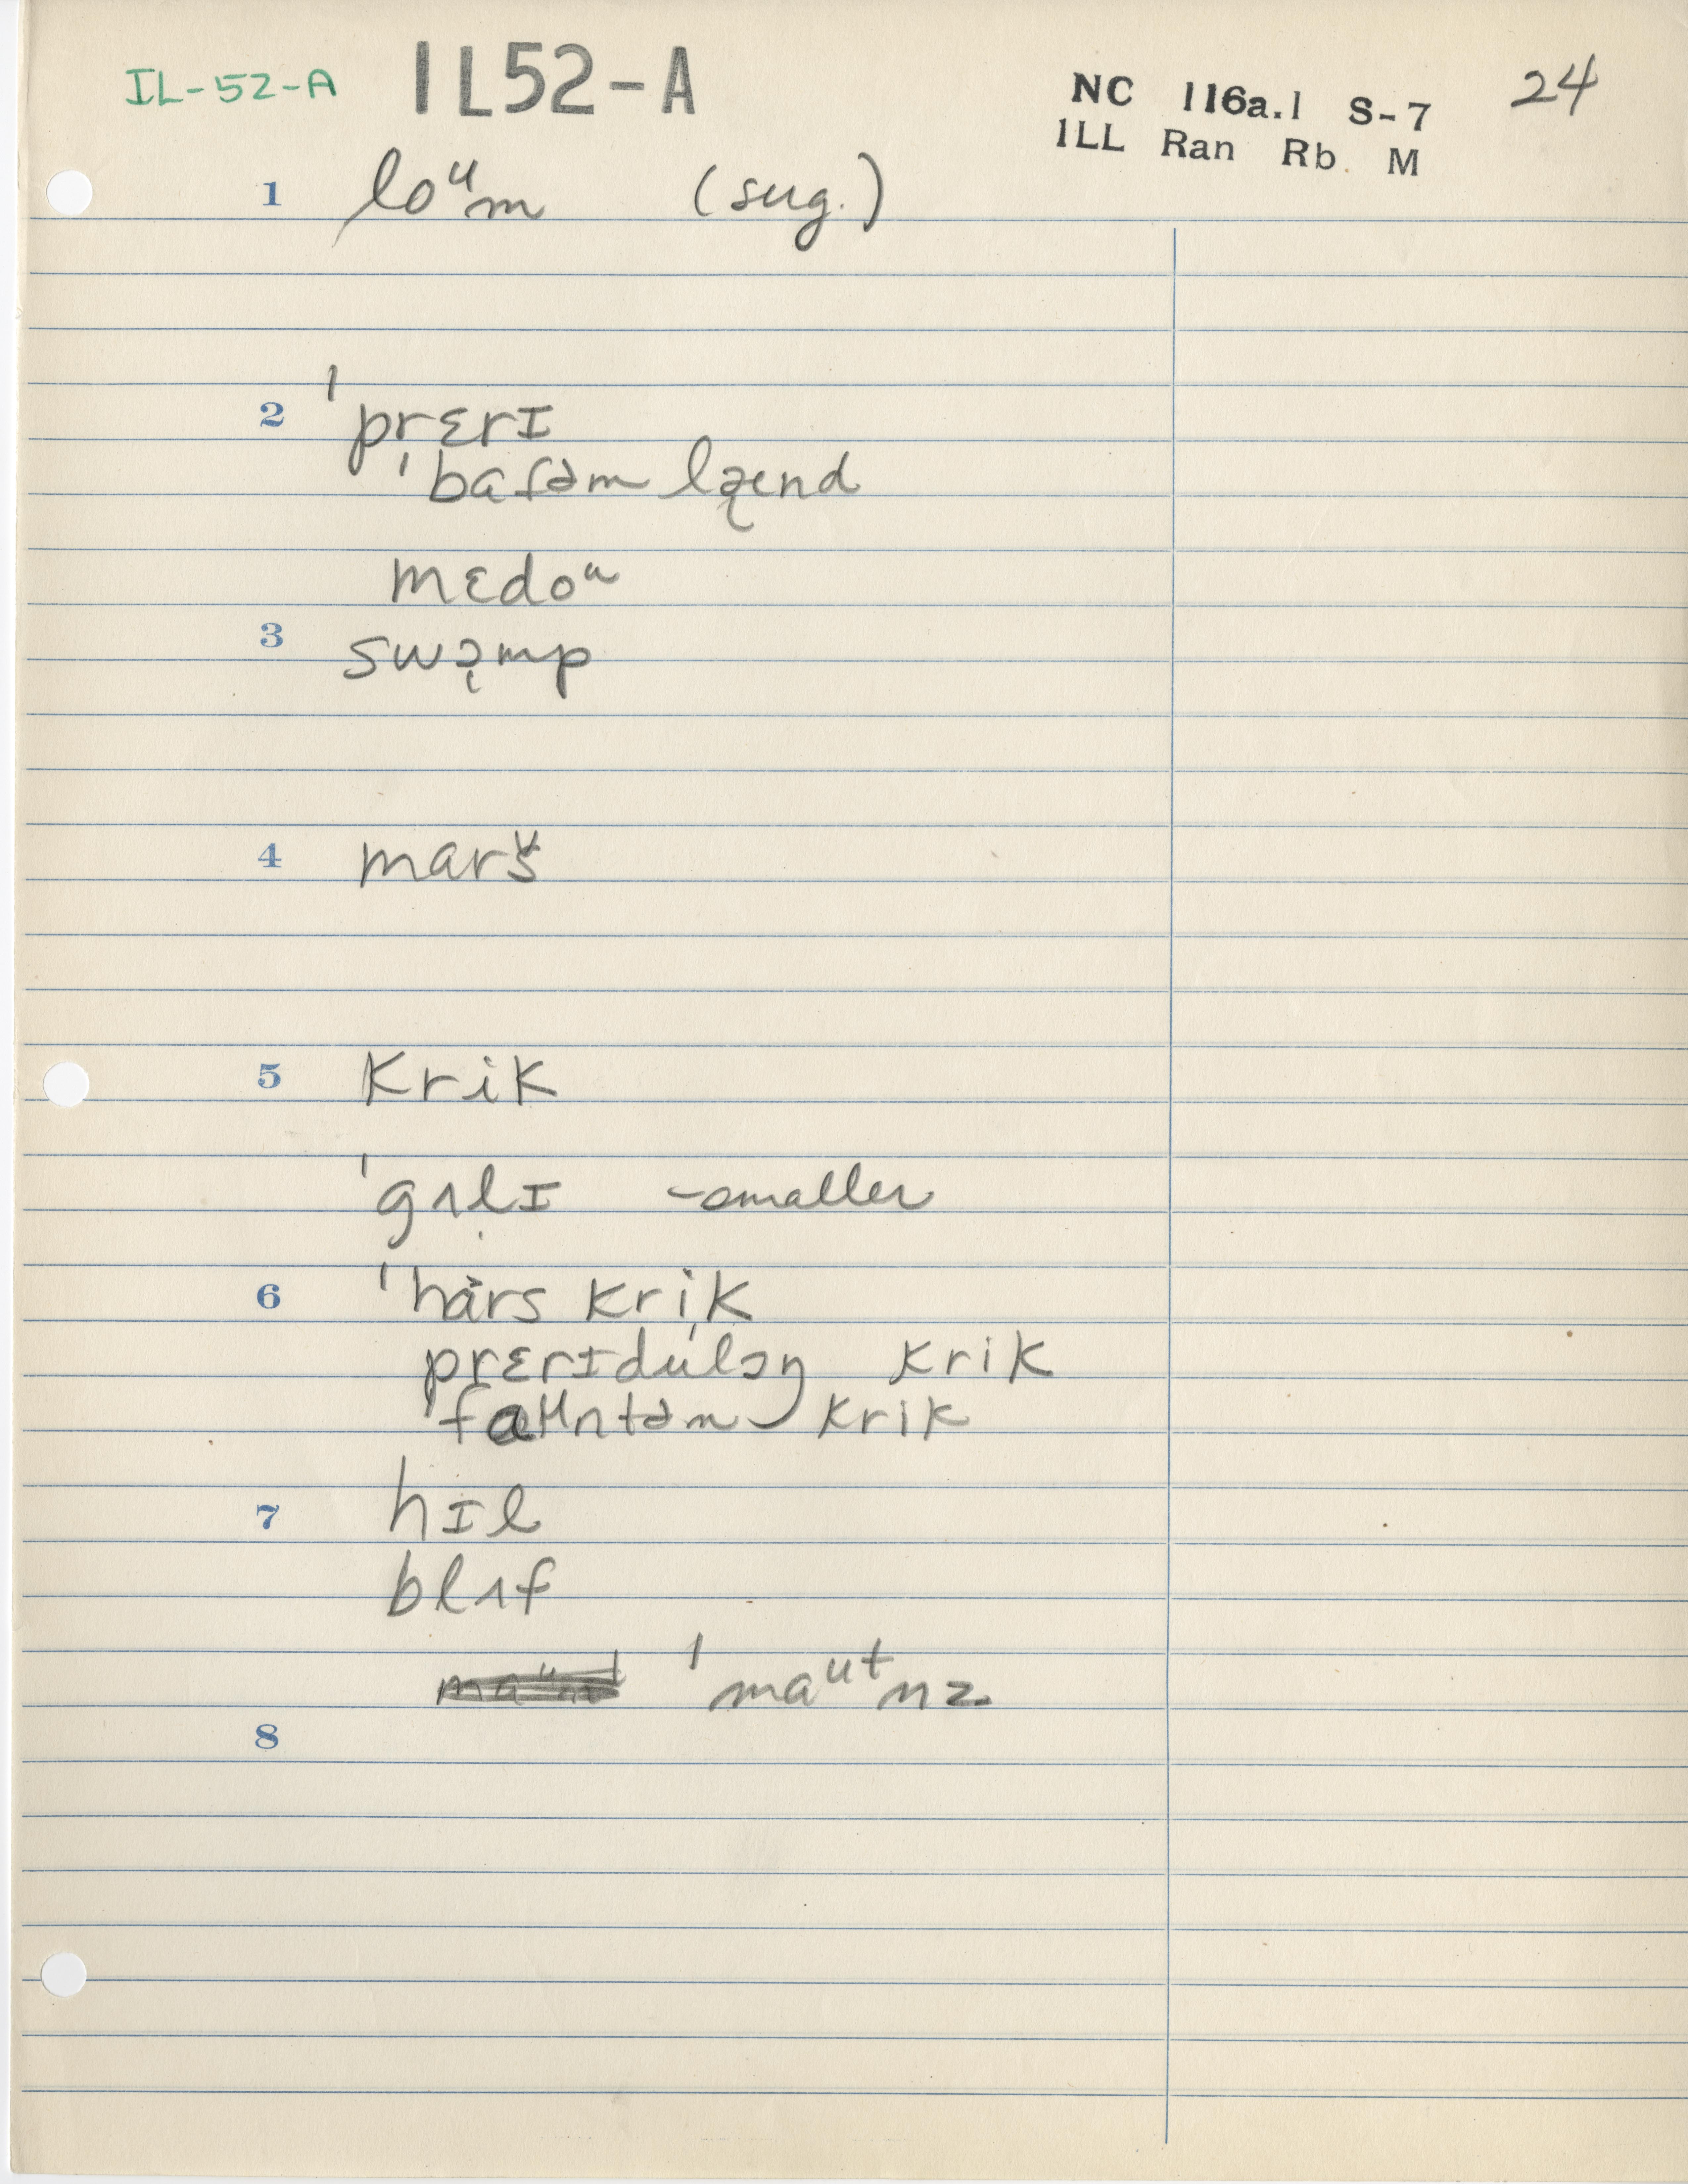 IL-52-A IL52-A NC 116a.1 S-7 24
ILL Ran Rb. M
1 loᵘm (sug.)
2 ˈprɛrɪ
ˈbɑɾəm læ̨nd
mɛdoᵘ
3 swɔ̨mp
4 marš
5 krik
ˈgʌlɪ - smaller
6 ˈhȧrs kri̩k
prɛrɪdúlɔŋ krik
ˈfaᵘntəm krik
7 hɪl
blʌf
ˈmaᵘᵗnz
8